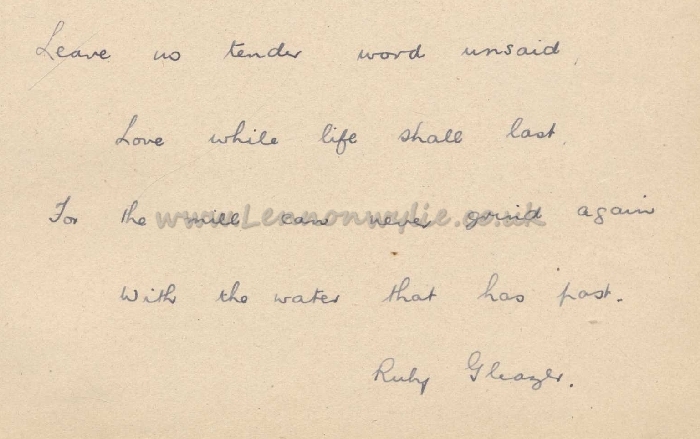 Leave no tender word unsaid,
Love while life shall last.
For the mill can never grind again
www.Lennonwylie.co.uk
With the water that has past.
Ruby Gleazer.